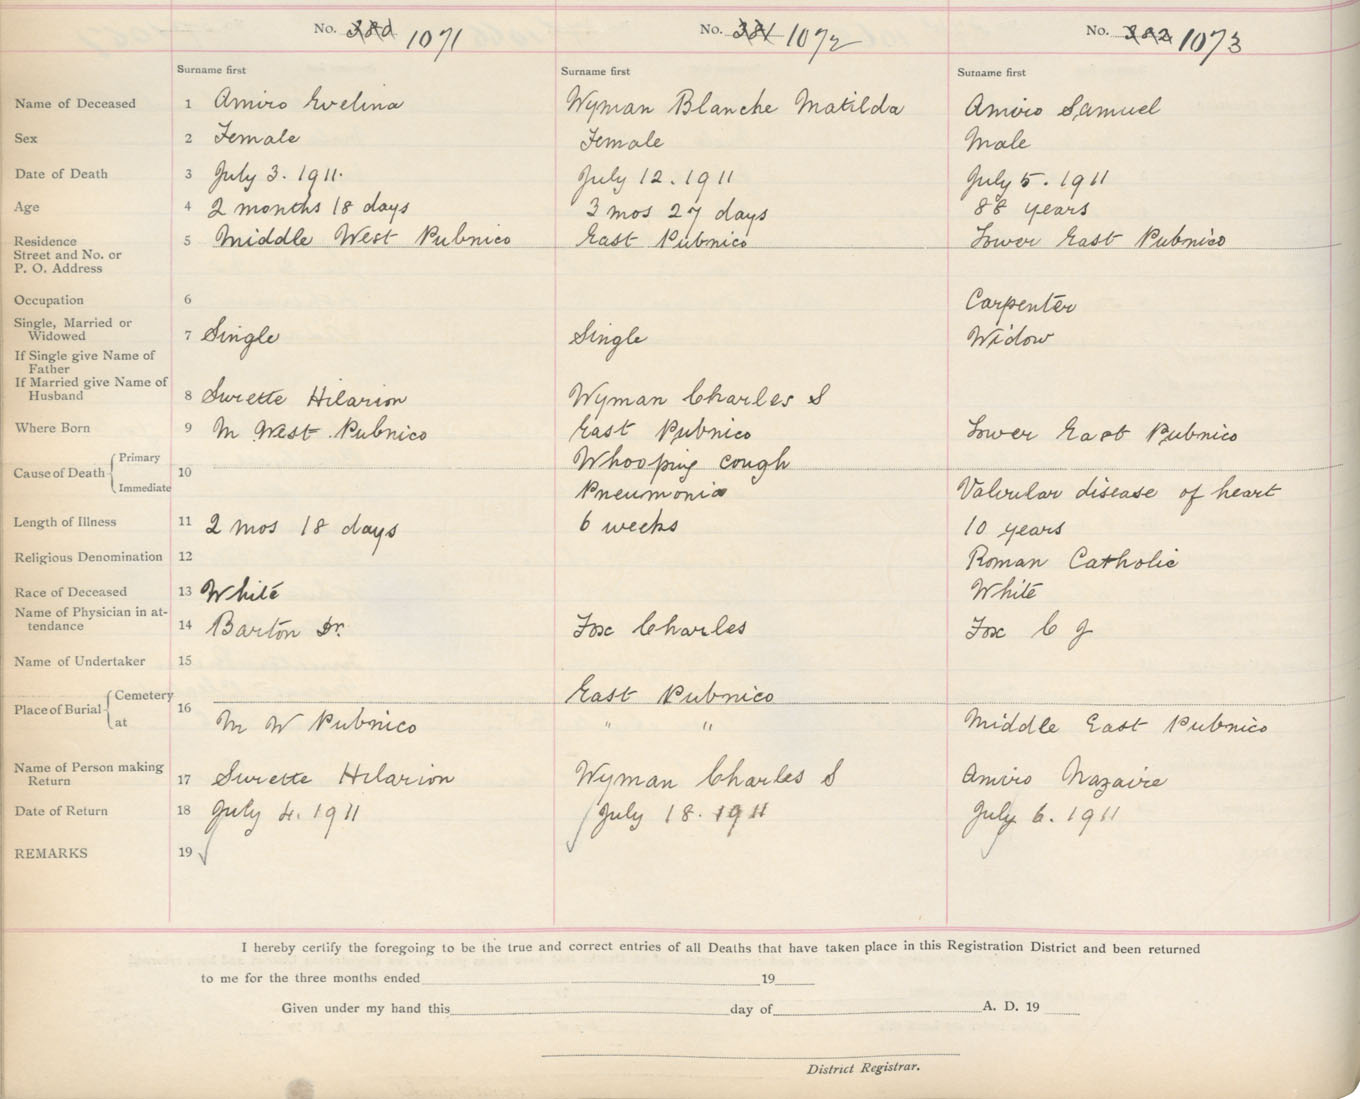 No. 380 1071 No. 381 1072 No. 382 1073
Surname first Surname first Surname first
Name of Deceased 1 Amiro Evelina Wyman Blanche Matilda Amiro Samuel
Sex 2 Female Female Male
Date of Death 3 July 3. 1911. July 12. 1911 July 5. 1911
Age 4 2 months 18 days 3 mos 27 days 88 years
Residence 5 Middle West Pubnico East Pubnico Lower East Pubnico
Street and No. or
P. O. Address
Occupation 6 Carpenter
Single, Married or
Widowed 7 Single Single Widow
If Single give Name of
Father
If Married give Name of
Husband 8 Surette Hilarion Wyman Charles S
Where Born 9 M West Pubnico East Pubnico Lower East Pubnico
Cause of Death 10 Primary Whooping cough
Immediate Pneumonia Valvular disease of heart
Length of Illness 11 2 mos 18 days 6 weeks 10 years
Religious Denomination 12 Roman Catholic
Race of Deceased 13 White White
Name of Physician in at-
tendance 14 Barton Dr. Fox Charles Fox C J
Name of Undertaker 15
Place of Burial 16 Cemetery East Pubnico
at M W Pubnico " " Middle East Pubnico
Name of Person making
Return 17 Surette Hilarion Wyman Charles S Amiro Nazaire
Date of Return 18 July 4. 1911 July 18. 1911 July 6. 1911
REMARKS 19
I hereby certify the foregoing to be the true and correct entries of all Deaths that have taken place in this Registration District and been returned
to me for the three months ended 19
Given under my hand this day of A. D. 19
District Registrar.